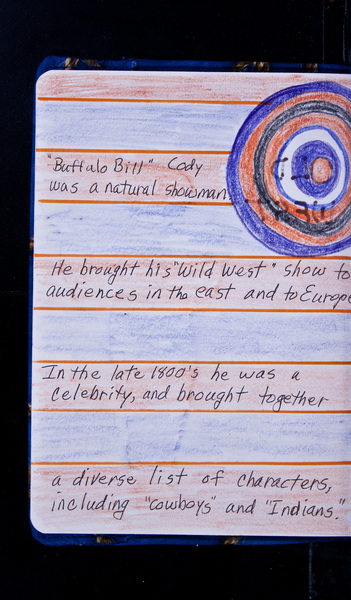 "Buffalo Bill" Cody
was a natural showman.
He brought his "Wild West" show to
audiences in the east and to Europe
In the late 1800's he was a
celebrity, and brought together
a diverse list of characters,
including "cowboys" and "Indians."